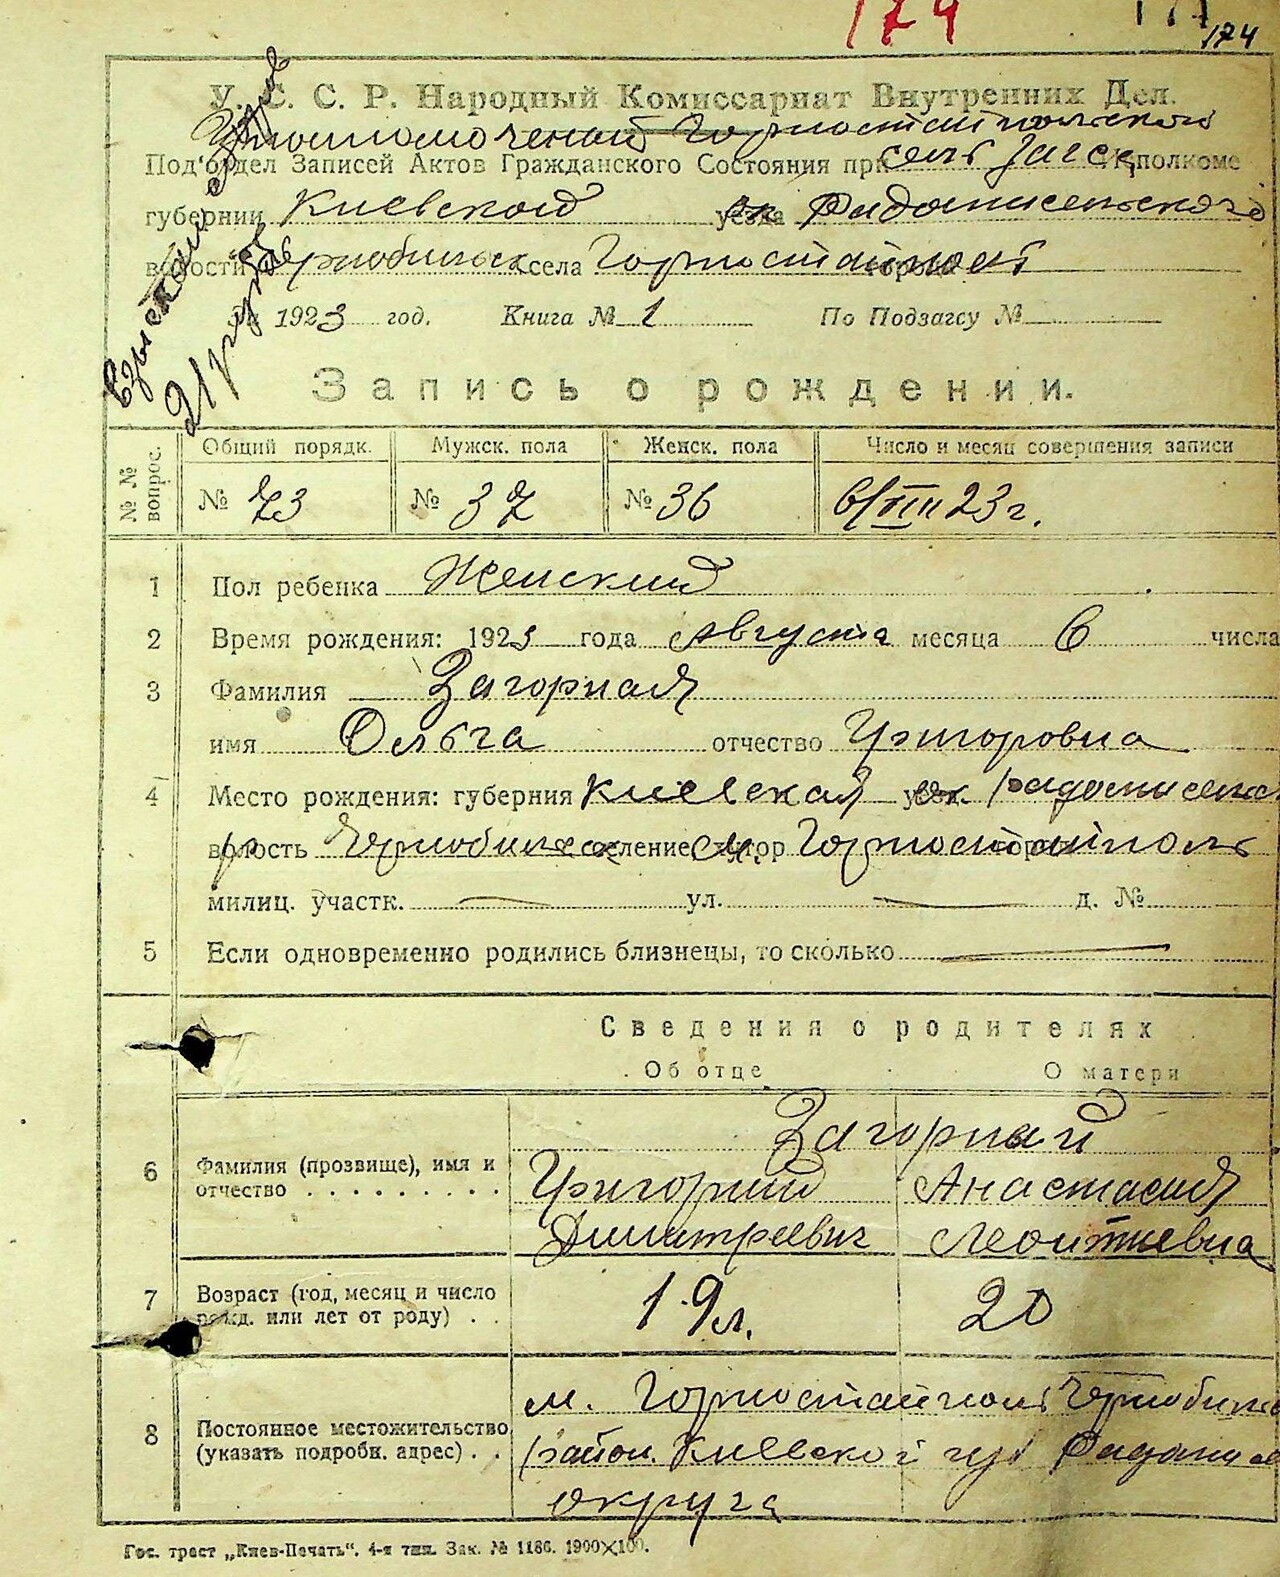 174
174
У. С. С. Р. Народный Комиссариат Внутренних Дел.
Горностайпольской
Под'отдел Записей Актов Гражданского Состояния при сель Загсе Исполкоме
губернии Киевской уезда ок Радомисельского
волости Чернобильск села Горностайполь
За 1923 год. Книга № 1 По Подзагсу №
взыскан
21 руб
Запись о рождении.
№ № вопрос.
Общий порядк. Мужск. пола Женск. пола Число и месяц совершения записи
№ 73 № 37 № 36 6/VIII 23 г.
1 Пол ребенка Женский
2 Время рождения: 1923 года Августа месяца 6 числа
3 Фамилия Загорная
имя Ольга отчество Григоровна
4 Место рождения: губерния Киевская ок. Радомисельс
волость Чернобильск селение, хутор м. Горностайполь
милиц. участк. — ул. — д. №
5 Если одновременно родились близнецы, то сколько —
Сведения о родителях
Об отце О матери
Загорный
6 Фамилия (прозвище), имя и отчество . . . . . . . . .
Григорий Анастасия
Дмитреевич Леонтиевна
7 Возраст (год, месяц и число рожд. или лет от роду) . .
19 л. 20
8 Постоянное местожительство (указать подробн. адрес) . .
м. Горностайполь Чернобильс
район. Киевской губ Радомис
округа
Гос. трест „Киев-Печать“. 4-я тип. Зак. № 1186. 1900×100.